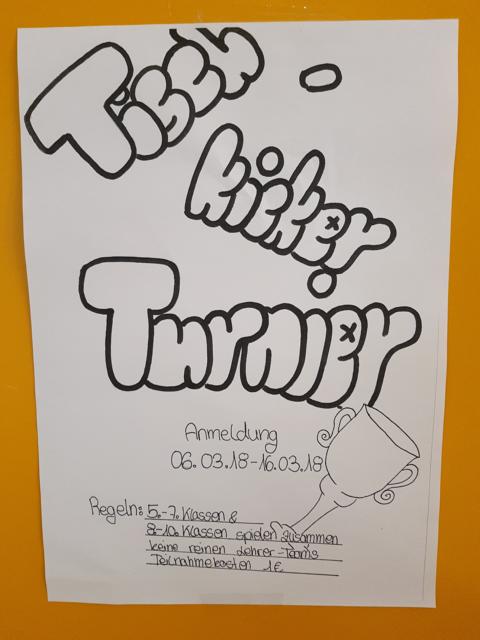 Tisch
kicker
Turnier
Anmeldung
06.03.18-16.03.18
Regeln: 5.-7. Klassen &
8-10. Klassen spielen zusammen
keine reinen Lehrer-Teams
Teilnahmekosten 1€